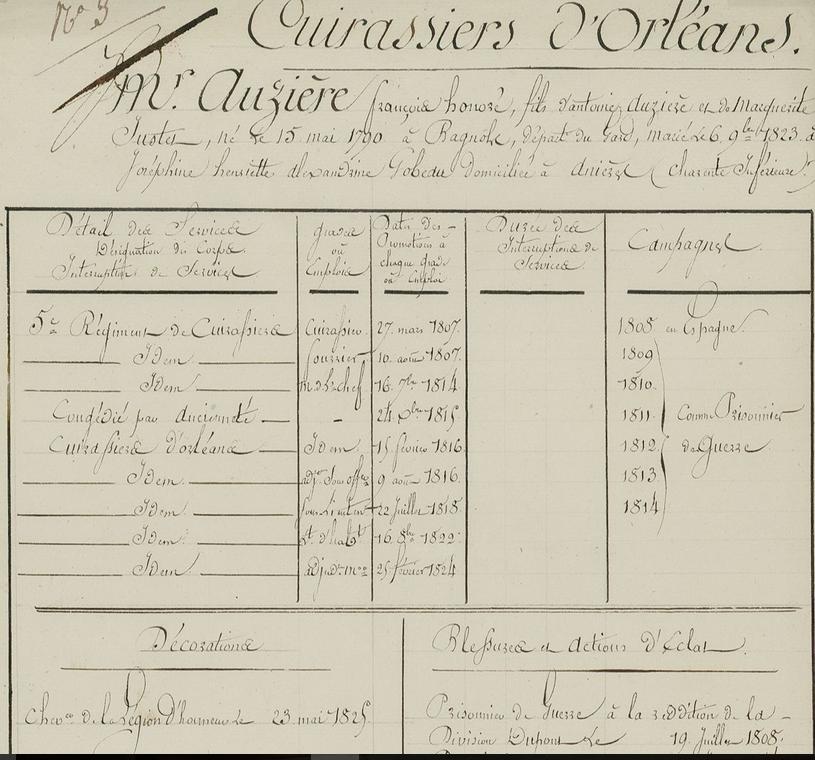 N° 3
Cuirassiers d'Orléans.
Mr. Auzière françois honoré, fils d'antoine auzière et de Marguerite
Juste, né le 15 mai 1790 à Bagnols, départ. du Gard, marié le 6 9bre 1823 à
Joséphine henriette alexandrine Gobeau domiciliée à anières (charente Inférieure)
Détail des Services
Désignation des Corps
Interruption de Services
grades
ou
Emplois
Dates des
Promotions à
chaque grade
ou Emploi
Durée des
Interruptions de
Services
Campagnes
5e Régiment de Cuirassiers Cuirassier 27 mars 1807. 1808 en Espagne.
Idem fourrier 10 août 1807. 1809
Idem m.d.l. chef 16 7bre 1814 1810
Congédié par ancienneté - 24 Xbre 1815 1811 Comme Prisonnier
Cuirassiers d'orléans Idem 15 février 1816 1812 de Guerre
Idem adj. sous offer 9 août 1816. 1813
Idem sous Lieuten.t 22 Juillet 1818 1814
Idem Lt. d'habt 16 8bre 1822
Idem adjud. m.or 25 février 1824
Décorations
Blessures et actions d'Eclat.
Chever de la Légion d'honneur le 23 mai 1825
Prisonnier de Guerre à la reddition de la
Division Dupont le 19 Juillet 1808.